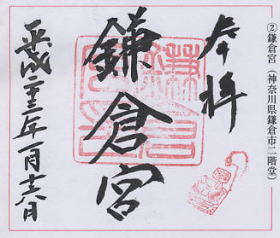 ②鎌倉宮（神奈川県鎌倉市二階堂）
奉拝
鎌倉宮
平成二十三年一月日